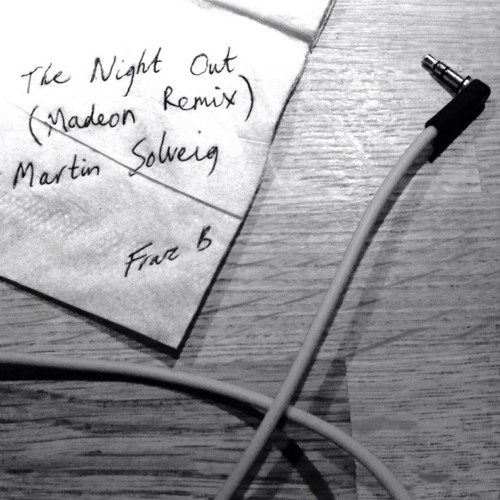 The Night Out
(Madeon Remix)
Martin Solveig
Fraz B